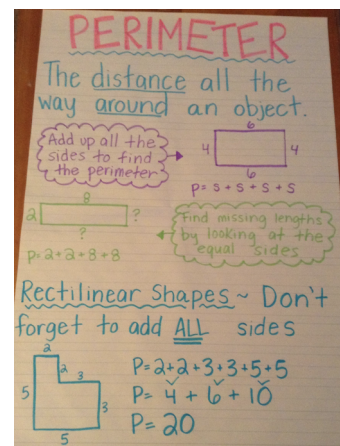 PERIMETER
The distance all the
way around an object.
Add up all the
sides to find
the perimeter
6
4
4
6
P= S + S + S + S
8
2
?
?
P= 2+2+8+8
Find missing lengths
by looking at the
equal sides
Rectilinear Shapes ~ Don't
forget to add ALL sides
2
2
3
5
3
5
P= 2+2+3+3+5+5
P= 4 + 6 + 10
P= 20